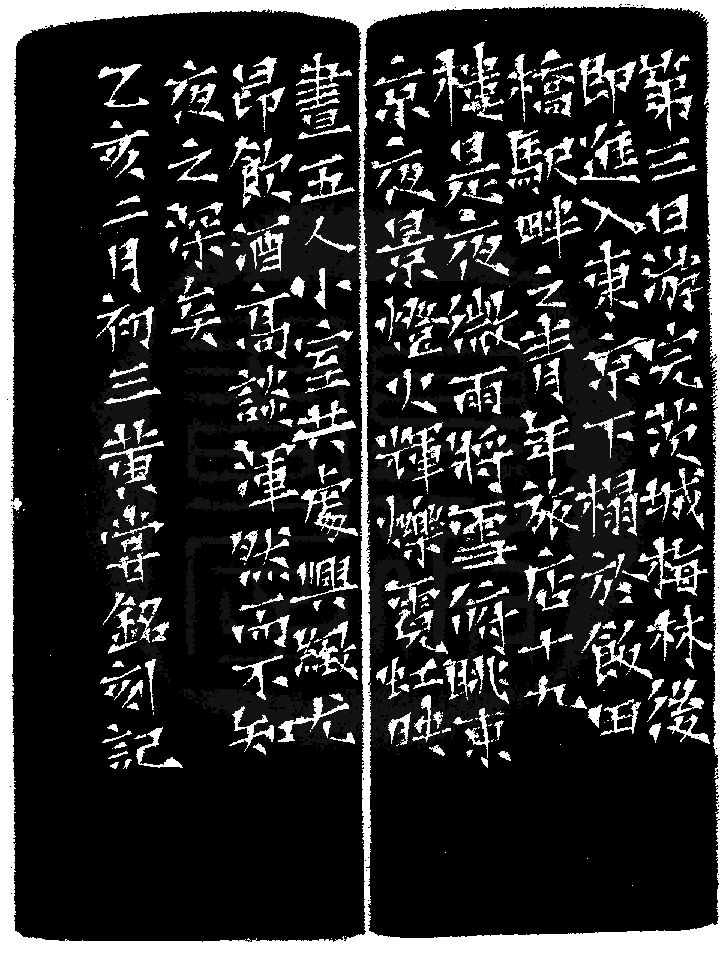 第三日游完茨城梅林後
即進入東京下榻於飯田
橋駅畔之青年旅店十九
樓是夜微雨將雪俯眺東
京夜景燈火輝爍霓虹映
晝五人小室共處興緻尤
昂飲酒高談渾然而不知
夜之深矣
乙亥二月初三黃嘗銘刻記